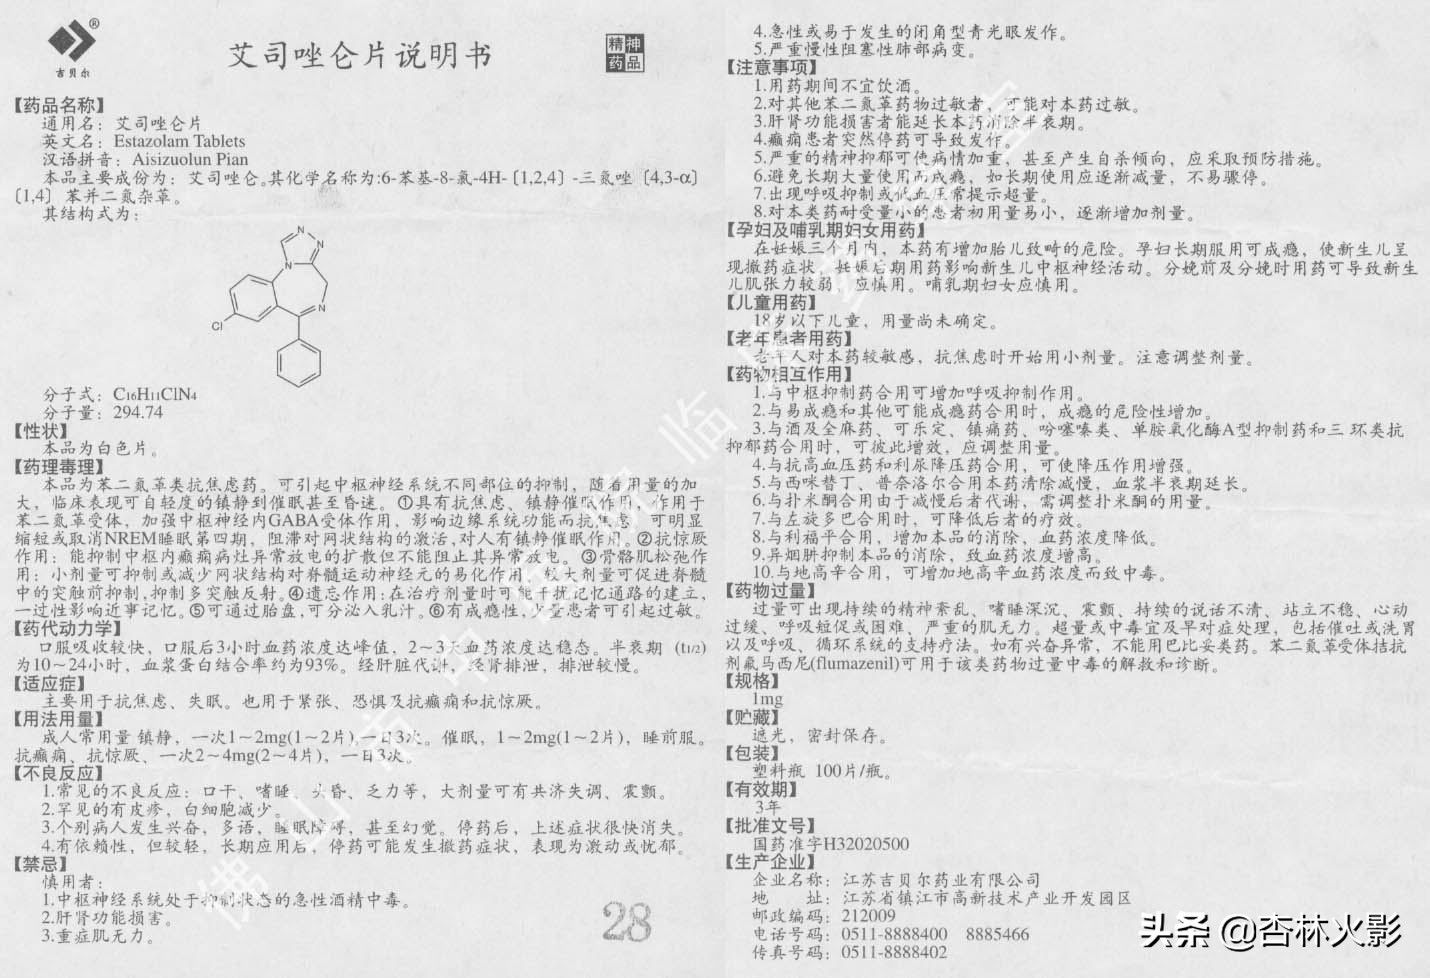 吉贝尔
艾司唑仑片说明书
精神
药品
【药品名称】
通用名：艾司唑仑片
英文名：Estazolam Tablets
汉语拼音：Aisizuolun Pian
本品主要成份为：艾司唑仑。其化学名称为:6-苯基-8-氯-4H-〔1,2,4〕-三氮唑〔4,3-α〕
〔1,4〕苯并二氮杂䓬。
其结构式为：
N
N
N
N
Cl
分子式：C16H11ClN4
分子量：294.74
【性状】
本品为白色片。
【药理毒理】
本品为苯二氮䓬类抗焦虑药。可引起中枢神经系统不同部位的抑制，随着用量的加
大，临床表现可自轻度的镇静到催眠甚至昏迷。①具有抗焦虑、镇静催眠作用，作用于
苯二氮䓬受体，加强中枢神经内GABA受体作用，影响边缘系统功能而抗焦虑。可明显
缩短或取消NREM睡眠第四期，阻滞对网状结构的激活,对人有镇静催眠作用。②抗惊厥
作用：能抑制中枢内癫痫病灶异常放电的扩散但不能阻止其异常放电。③骨骼肌松弛作
用：小剂量可抑制或减少网状结构对脊髓运动神经元的易化作用，较大剂量可促进脊髓
中的突触前抑制,抑制多突触反射。④遗忘作用:在治疗剂量时可能干扰记忆通路的建立，
一过性影响近事记忆。⑤可通过胎盘,可分泌入乳汁。⑥有成瘾性,少量患者可引起过敏。
【药代动力学】
口服吸收较快，口服后3小时血药浓度达峰值，2～3天血药浓度达稳态。半衰期 (t1/2)
为10～24小时，血浆蛋白结合率约为93%。经肝脏代谢，经肾排泄，排泄较慢。
【适应症】
主要用于抗焦虑、失眠。也用于紧张、恐惧及抗癫痫和抗惊厥。
【用法用量】
成人常用量 镇静，一次1～2mg(1～2片),一日3次。催眠，1～2mg(1～2片)，睡前服。
抗癫痫、抗惊厥、一次2～4mg(2～4片)，一日3次。
【不良反应】
1.常见的不良反应：口干、嗜睡、头昏、乏力等，大剂量可有共济失调、震颤。
2.罕见的有皮疹，白细胞减少。
3.个别病人发生兴奋，多语，睡眠障碍，甚至幻觉。停药后，上述症状很快消失。
4.有依赖性，但较轻，长期应用后，停药可能发生撤药症状，表现为激动或忧郁。
【禁忌】
慎用者：
1.中枢神经系统处于抑制状态的急性酒精中毒。
2.肝肾功能损害。
3.重症肌无力。
28
4.急性或易于发生的闭角型青光眼发作。
5.严重慢性阻塞性肺部病变。
【注意事项】
1.用药期间不宜饮酒。
2.对其他苯二氮䓬药物过敏者，可能对本药过敏。
3.肝肾功能损害者能延长本药消除半衰期。
4.癫痫患者突然停药可导致发作。
5.严重的精神抑郁可使病情加重，甚至产生自杀倾向，应采取预防措施。
6.避免长期大量使用而成瘾，如长期使用应逐渐减量，不易骤停。
7.出现呼吸抑制或低血压常提示超量。
8.对本类药耐受量小的患者初用量易小，逐渐增加剂量。
【孕妇及哺乳期妇女用药】
在妊娠三个月内，本药有增加胎儿致畸的危险。孕妇长期服用可成瘾，使新生儿呈
现撤药症状，妊娠后期用药影响新生儿中枢神经活动。分娩前及分娩时用药可导致新生
儿肌张力较弱，应慎用。哺乳期妇女应慎用。
【儿童用药】
18岁以下儿童，用量尚未确定。
【老年患者用药】
老年人对本药较敏感，抗焦虑时开始用小剂量。注意调整剂量。
【药物相互作用】
1.与中枢抑制药合用可增加呼吸抑制作用。
2.与易成瘾和其他可能成瘾药合用时，成瘾的危险性增加。
3.与酒及全麻药、可乐定、镇痛药、吩噻嗪类、单胺氧化酶A型抑制药和三 环类抗
抑郁药合用时，可彼此增效，应调整用量。
4.与抗高血压药和利尿降压药合用，可使降压作用增强。
5.与西咪替丁、普奈洛尔合用本药清除减慢，血浆半衰期延长。
6.与扑米酮合用由于减慢后者代谢，需调整扑米酮的用量。
7.与左旋多巴合用时，可降低后者的疗效。
8.与利福平合用，增加本品的消除，血药浓度降低。
9.异烟肼抑制本品的消除，致血药浓度增高。
10.与地高辛合用，可增加地高辛血药浓度而致中毒。
【药物过量】
过量可出现持续的精神紊乱、嗜睡深沉、震颤、持续的说话不清、站立不稳、心动
过缓、呼吸短促或困难、严重的肌无力。超量或中毒宜及早对症处理，包括催吐或洗胃
以及呼吸、循环系统的支持疗法。如有兴奋异常，不能用巴比妥类药。苯二氮䓬受体拮抗
剂氟马西尼(flumazenil)可用于该类药物过量中毒的解救和诊断。
【规格】
1mg
【贮藏】
遮光，密封保存。
【包装】
塑料瓶 100片/瓶。
【有效期】
3年
【批准文号】
国药准字H32020500
【生产企业】
企业名称：江苏吉贝尔药业有限公司
地 址：江苏省镇江市高新技术产业开发园区
邮政编码：212009
电话号码：0511-8888400 8885466
传真号码：0511-8888402
头条 @杏林火影